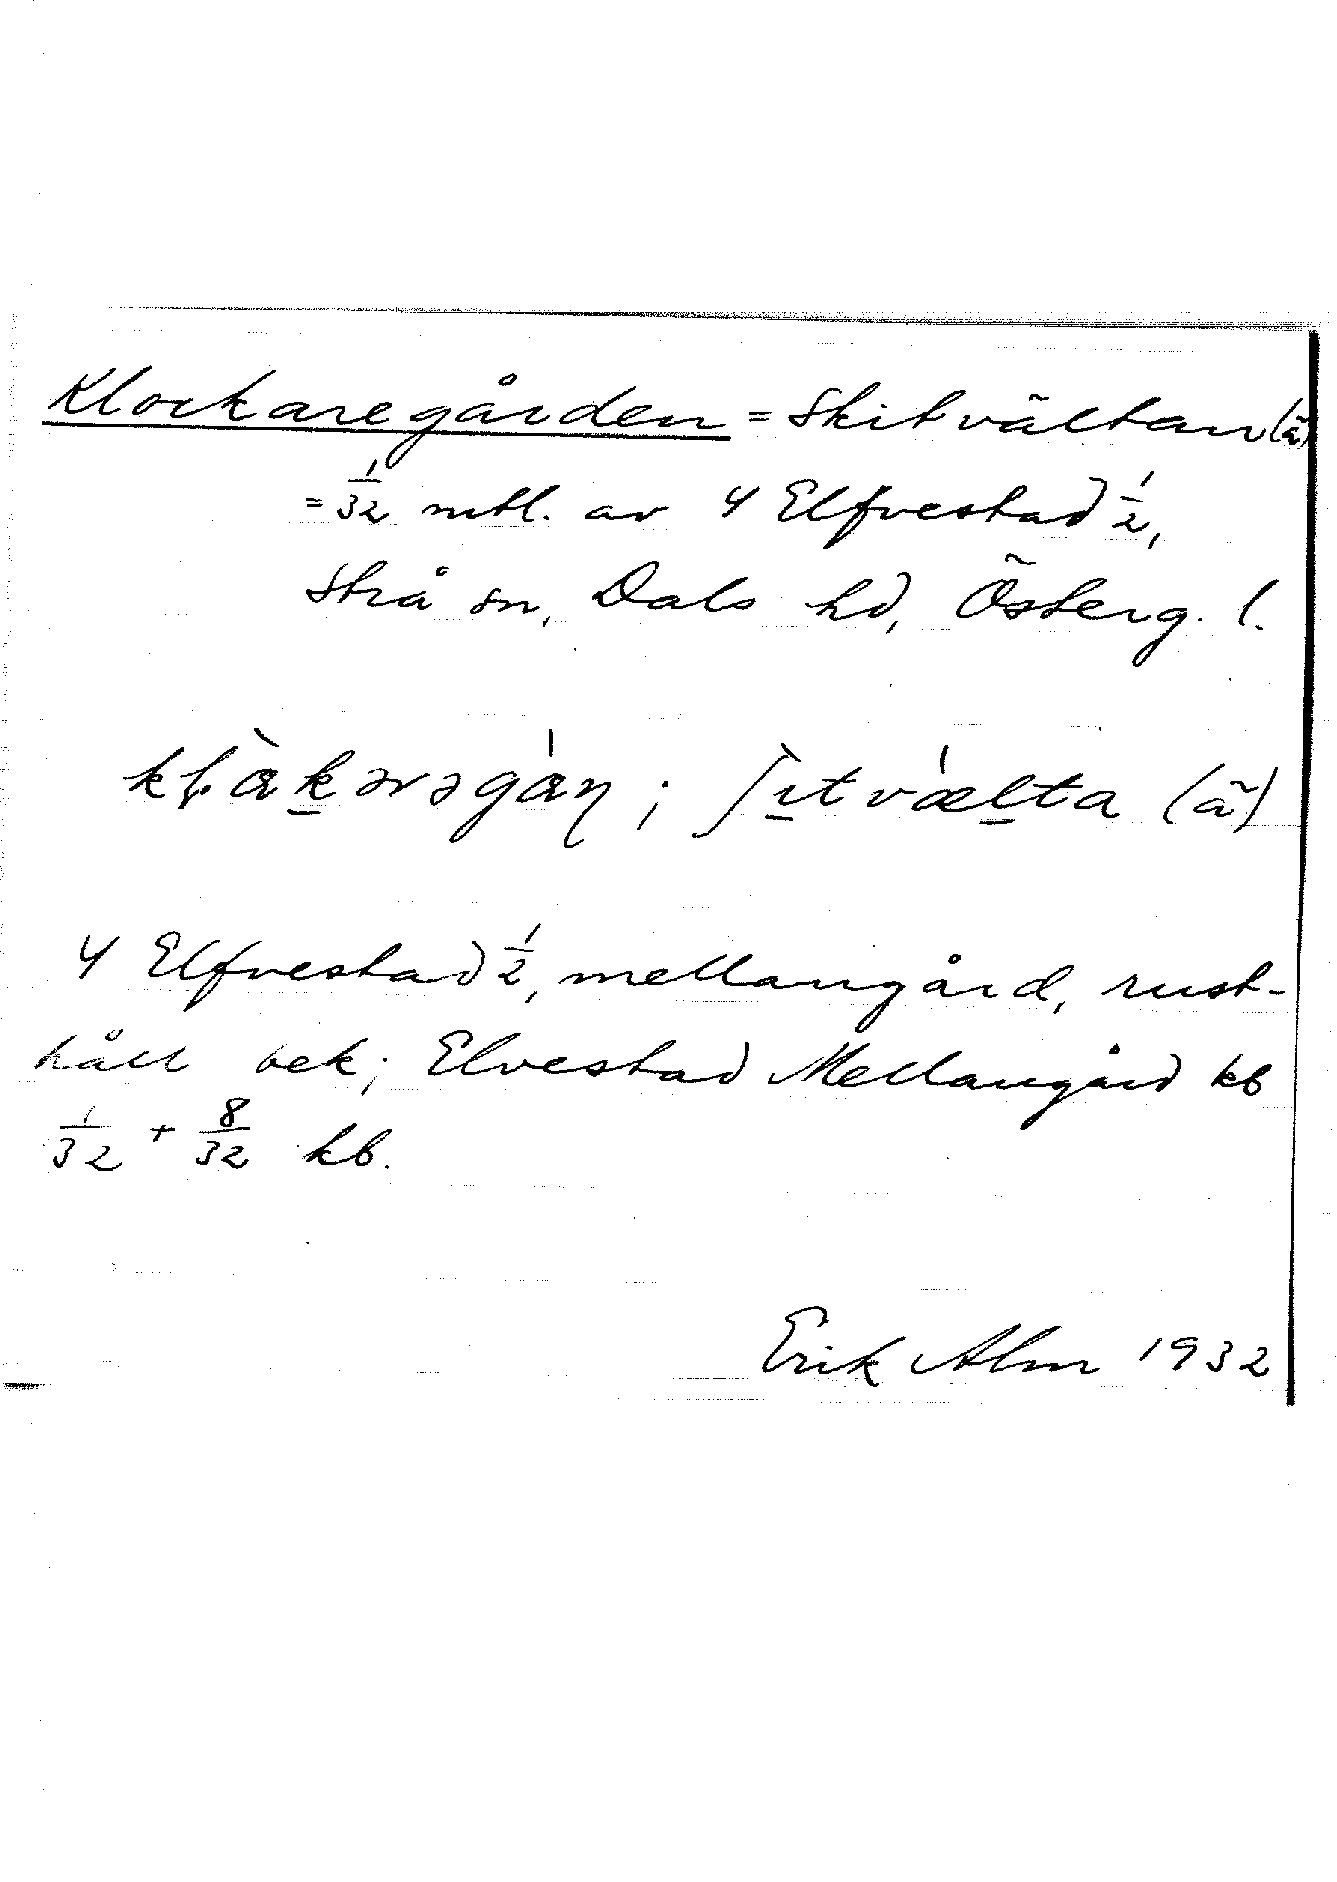 Klockaregården = Skitvältan (ä)
= 1/32 mtl. av 4 Elfvestad 1/2,
Strå sn, Dals hd, Österg. l.
kḷàk̲ərəgán; ʃɪ̲tvæ̀l̲ta (ä)
4 Elfvestad 1/2, mellangård, rust-
håll bek; Elvestad Mellangård kb
1/32 + 8/32 kb.
Erik Alm 1932